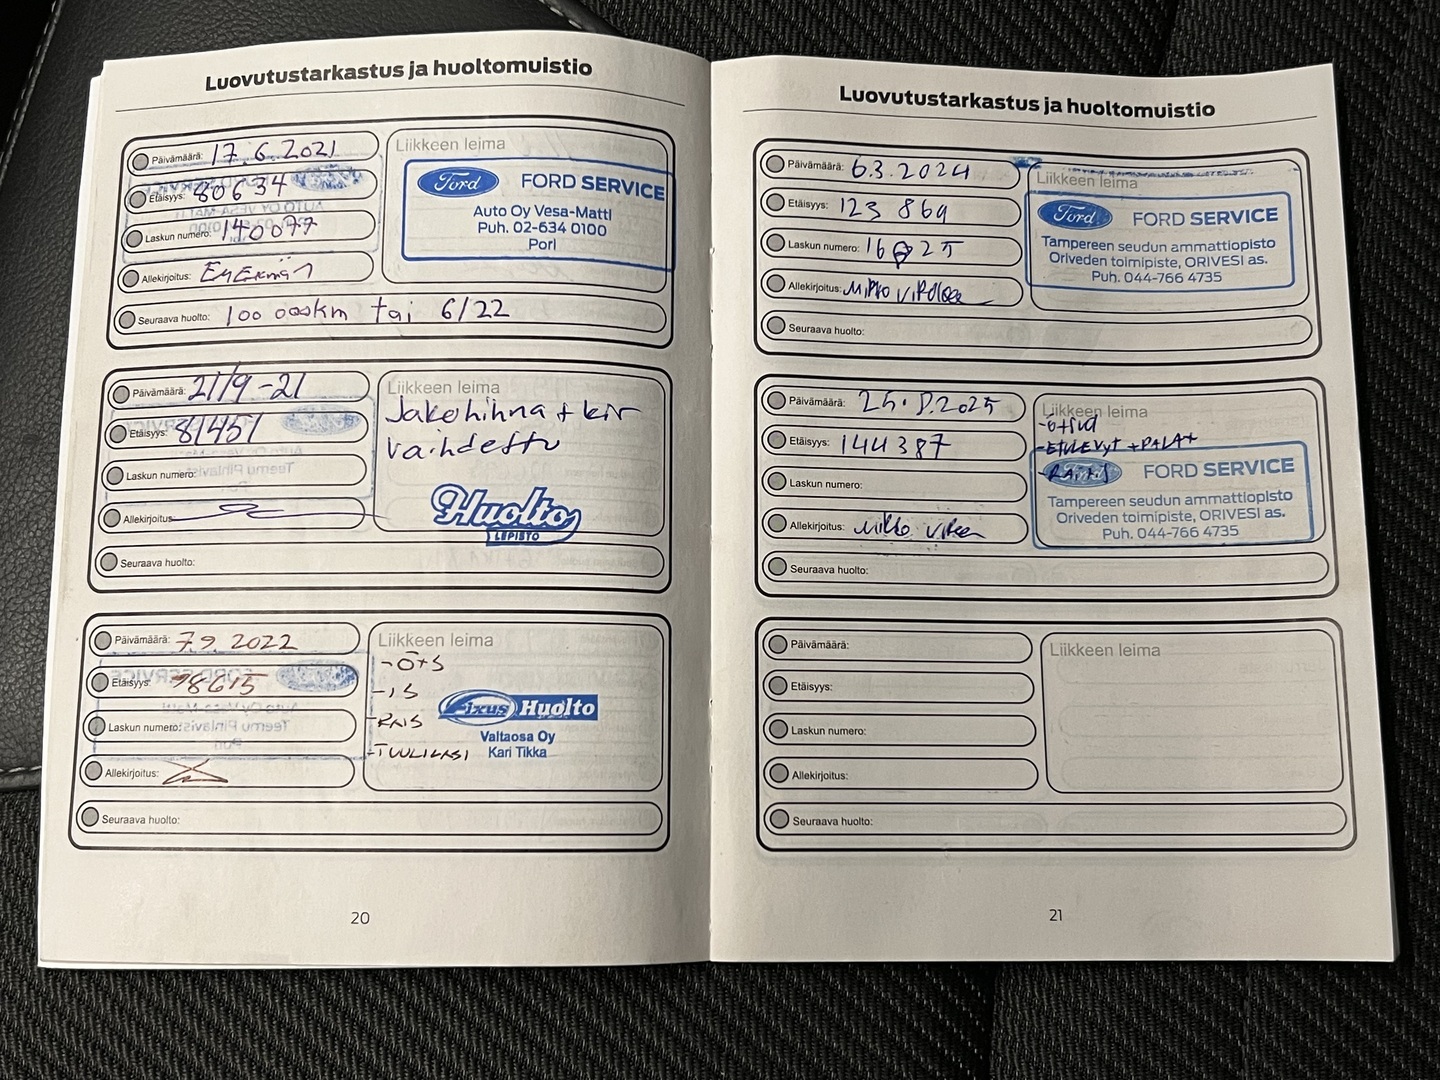 Luovutustarkastus ja huoltomuistio
Päivämäärä: 17.6.2021
Etäisyys: 80634
Laskun numero: 140077
Allekirjoitus:
Seuraava huolto: 100 000km tai 6/22
Liikkeen leima
Ford FORD SERVICE
Auto Oy Vesa-Matti
Puh. 02-634 0100
Pori
Päivämäärä: 21/9-21
Etäisyys: 81451
Laskun numero:
Allekirjoitus:
Seuraava huolto:
Liikkeen leima
Jakohihna + kir
vaihdettu
Huolto
LEPISTÖ
Päivämäärä: 7.9.2022
Etäisyys: 98615
Laskun numero:
Allekirjoitus:
Seuraava huolto:
Liikkeen leima
-Ö+S
-IS
-RAIS
-TUULILASI
Fixus Huolto
Valtaosa Oy
Kari Tikka
20
Luovutustarkastus ja huoltomuistio
Päivämäärä: 6.3.2024
Etäisyys: 123 869
Laskun numero:
Allekirjoitus: Mikko
Seuraava huolto:
Liikkeen leima
Ford FORD SERVICE
Tampereen seudun ammattiopisto
Oriveden toimipiste, ORIVESI as.
Puh. 044-766 4735
Päivämäärä: 25.8.2025
Etäisyys: 144387
Laskun numero:
Allekirjoitus: Mikko
Seuraava huolto:
Liikkeen leima
-ETULEVYT+PALAT
FORD SERVICE
Tampereen seudun ammattiopisto
Oriveden toimipiste, ORIVESI as.
Puh. 044-766 4735
Päivämäärä:
Etäisyys:
Laskun numero:
Allekirjoitus:
Seuraava huolto:
Liikkeen leima
21